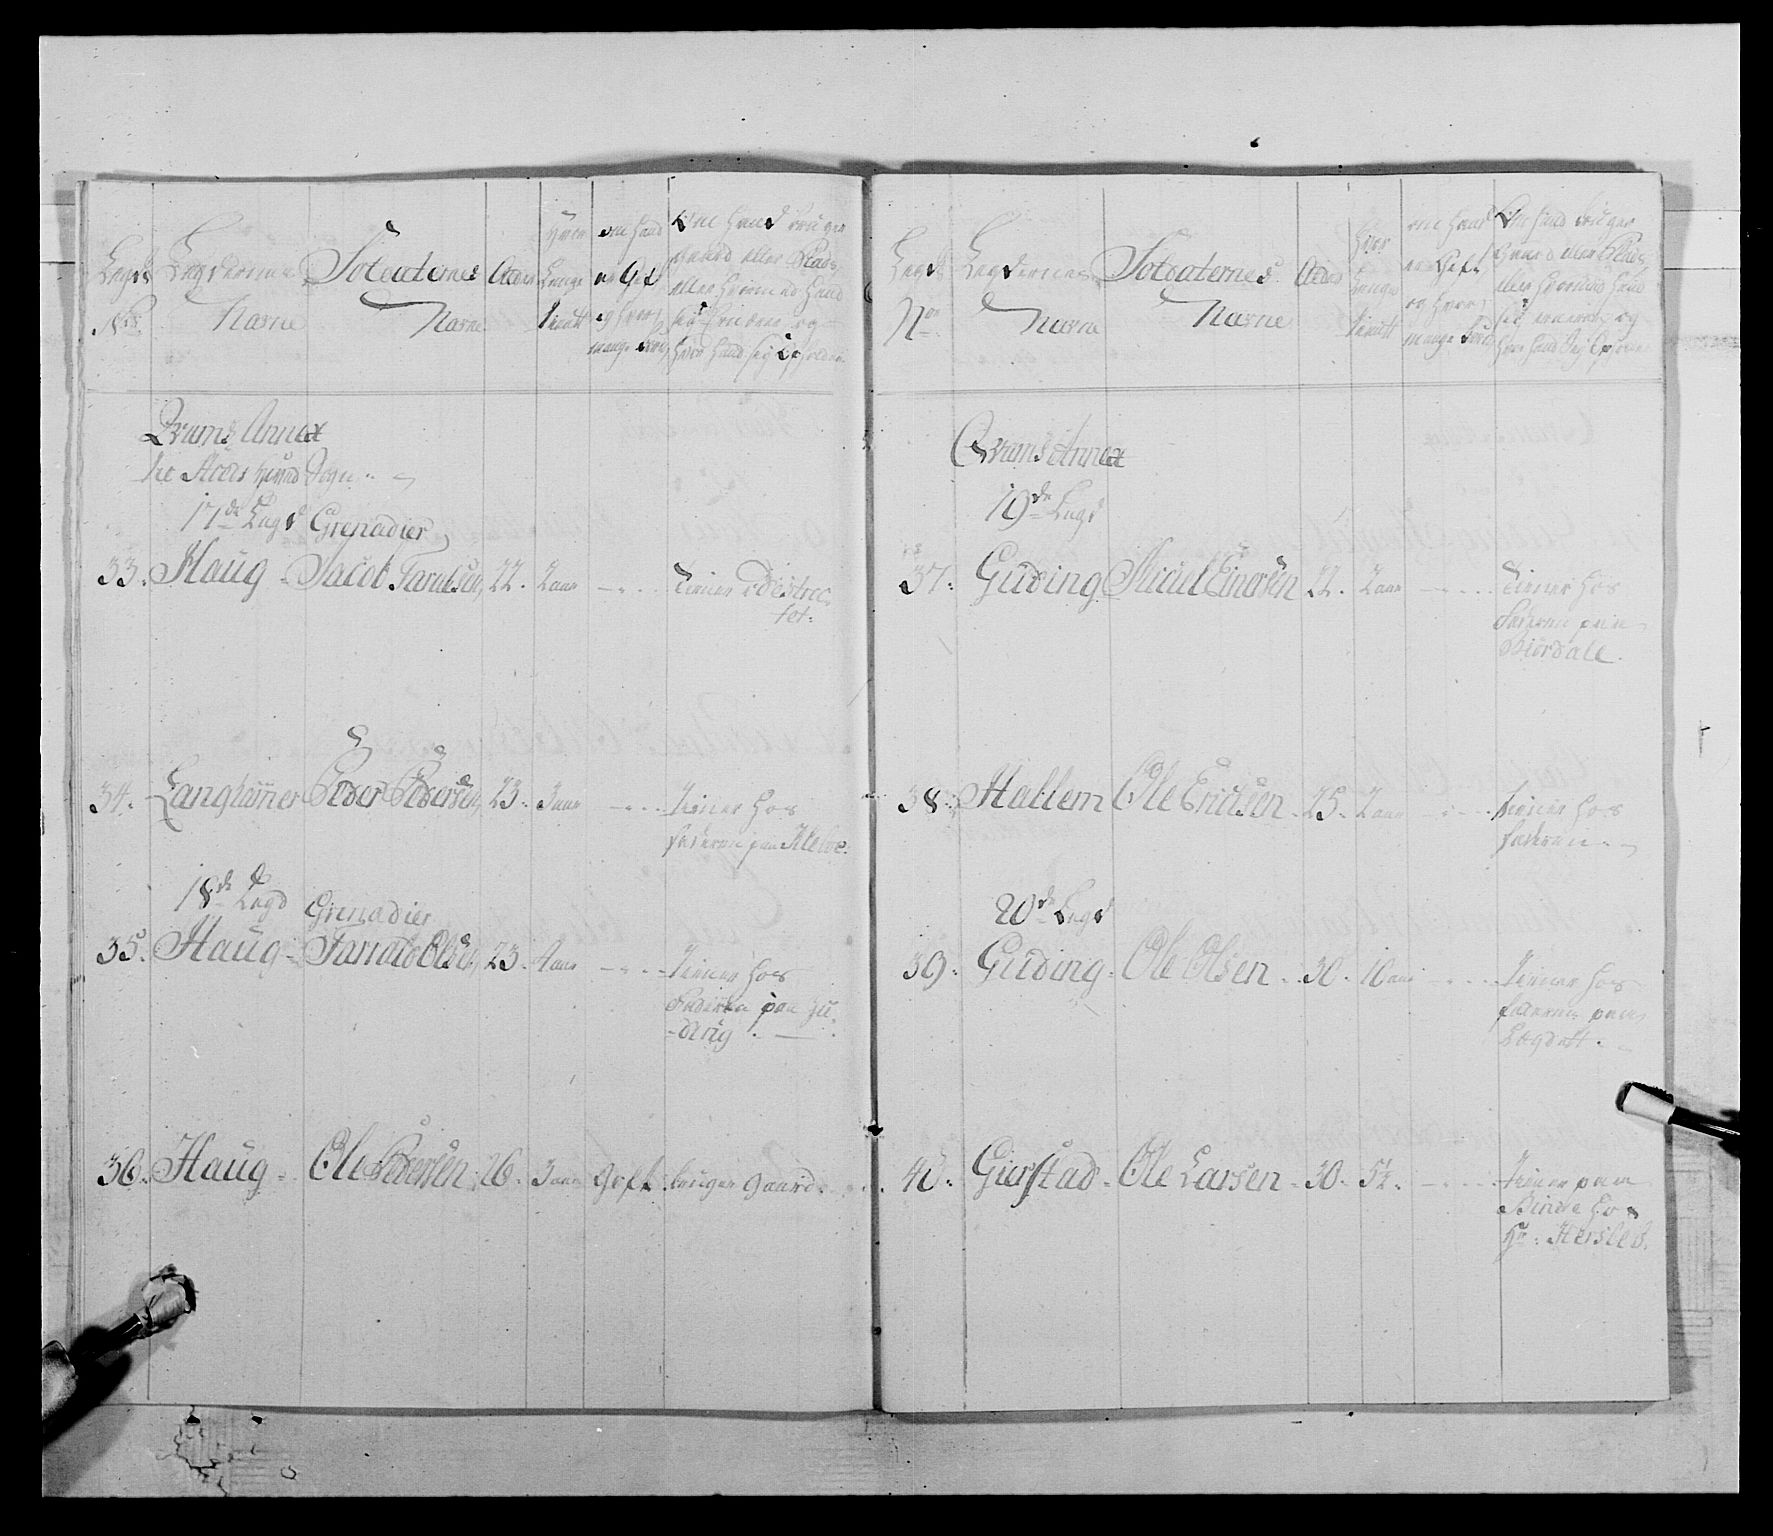 Legds
No
Legdernes
Navne
Soldaternes
Navne
Alder
Hvor
Længe
tient
om Hand
er Gift
og Hvor
mange Børn
Om Hand bruger
Gaard eller Plads,
eller Hvormed Hand
sig Ernærer og
Hvor Hand sig Opholder
Qvams Annex
17de Legd Grenadier
33. Haug - Jacob Taraldsen, 22. 2 aar - Tiener i Distric-
tet.
34. Langhammer Peder Pedersen, 23. 3 aar - Tiener hos
faderen paa Kleive.
18de Legd Grenadier
35. Haug - Tarrald Olsen, 23. 4 aar - Tiener hos
Faderen paa
36. Haug - Ole Pedersen, 26. 3 aar Gift bruger Gaard.
Legds
Nos
Legdernes
Navne
Soldaternes
Navne
Alder
Hvor
Længe
tient
om Hand
er Gift
og Hvor
mange Børn
Om Hand bruger
Gaard eller Plads,
eller Hvormed Hand
sig ernærer og
Hvor Hand sig Opholder
Qvams Annex
19de Legd
37. Guding Michel Einersen 22. 2 aar - Tiener hos
Faderen paa
Biørdale.
38. Hallem Ole Ericksen - 25. 2 aar - tiener hos
faderen.
20de Legd
39. Guding - Ole Olsen - 30. 10 aar - Tiener hos
faderen paa
40. Gierstad - Ole Larsen - 30. 5½. - Tiener paa
Binde hos
Hr. Hersleb.